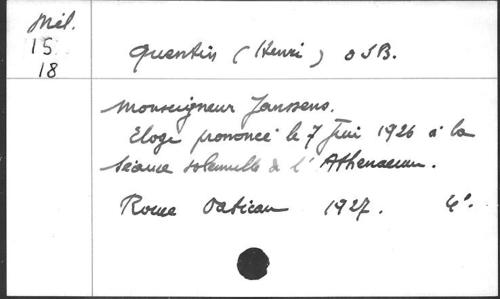 Mél.
15
18
Quentin (Henri) OSB.
Monseigneur Janssens.
Eloge prononcé le 7 Juin 1926 à la
séance solennelle de l'Athenaeum.
Rome Vatican 1927. 4°.